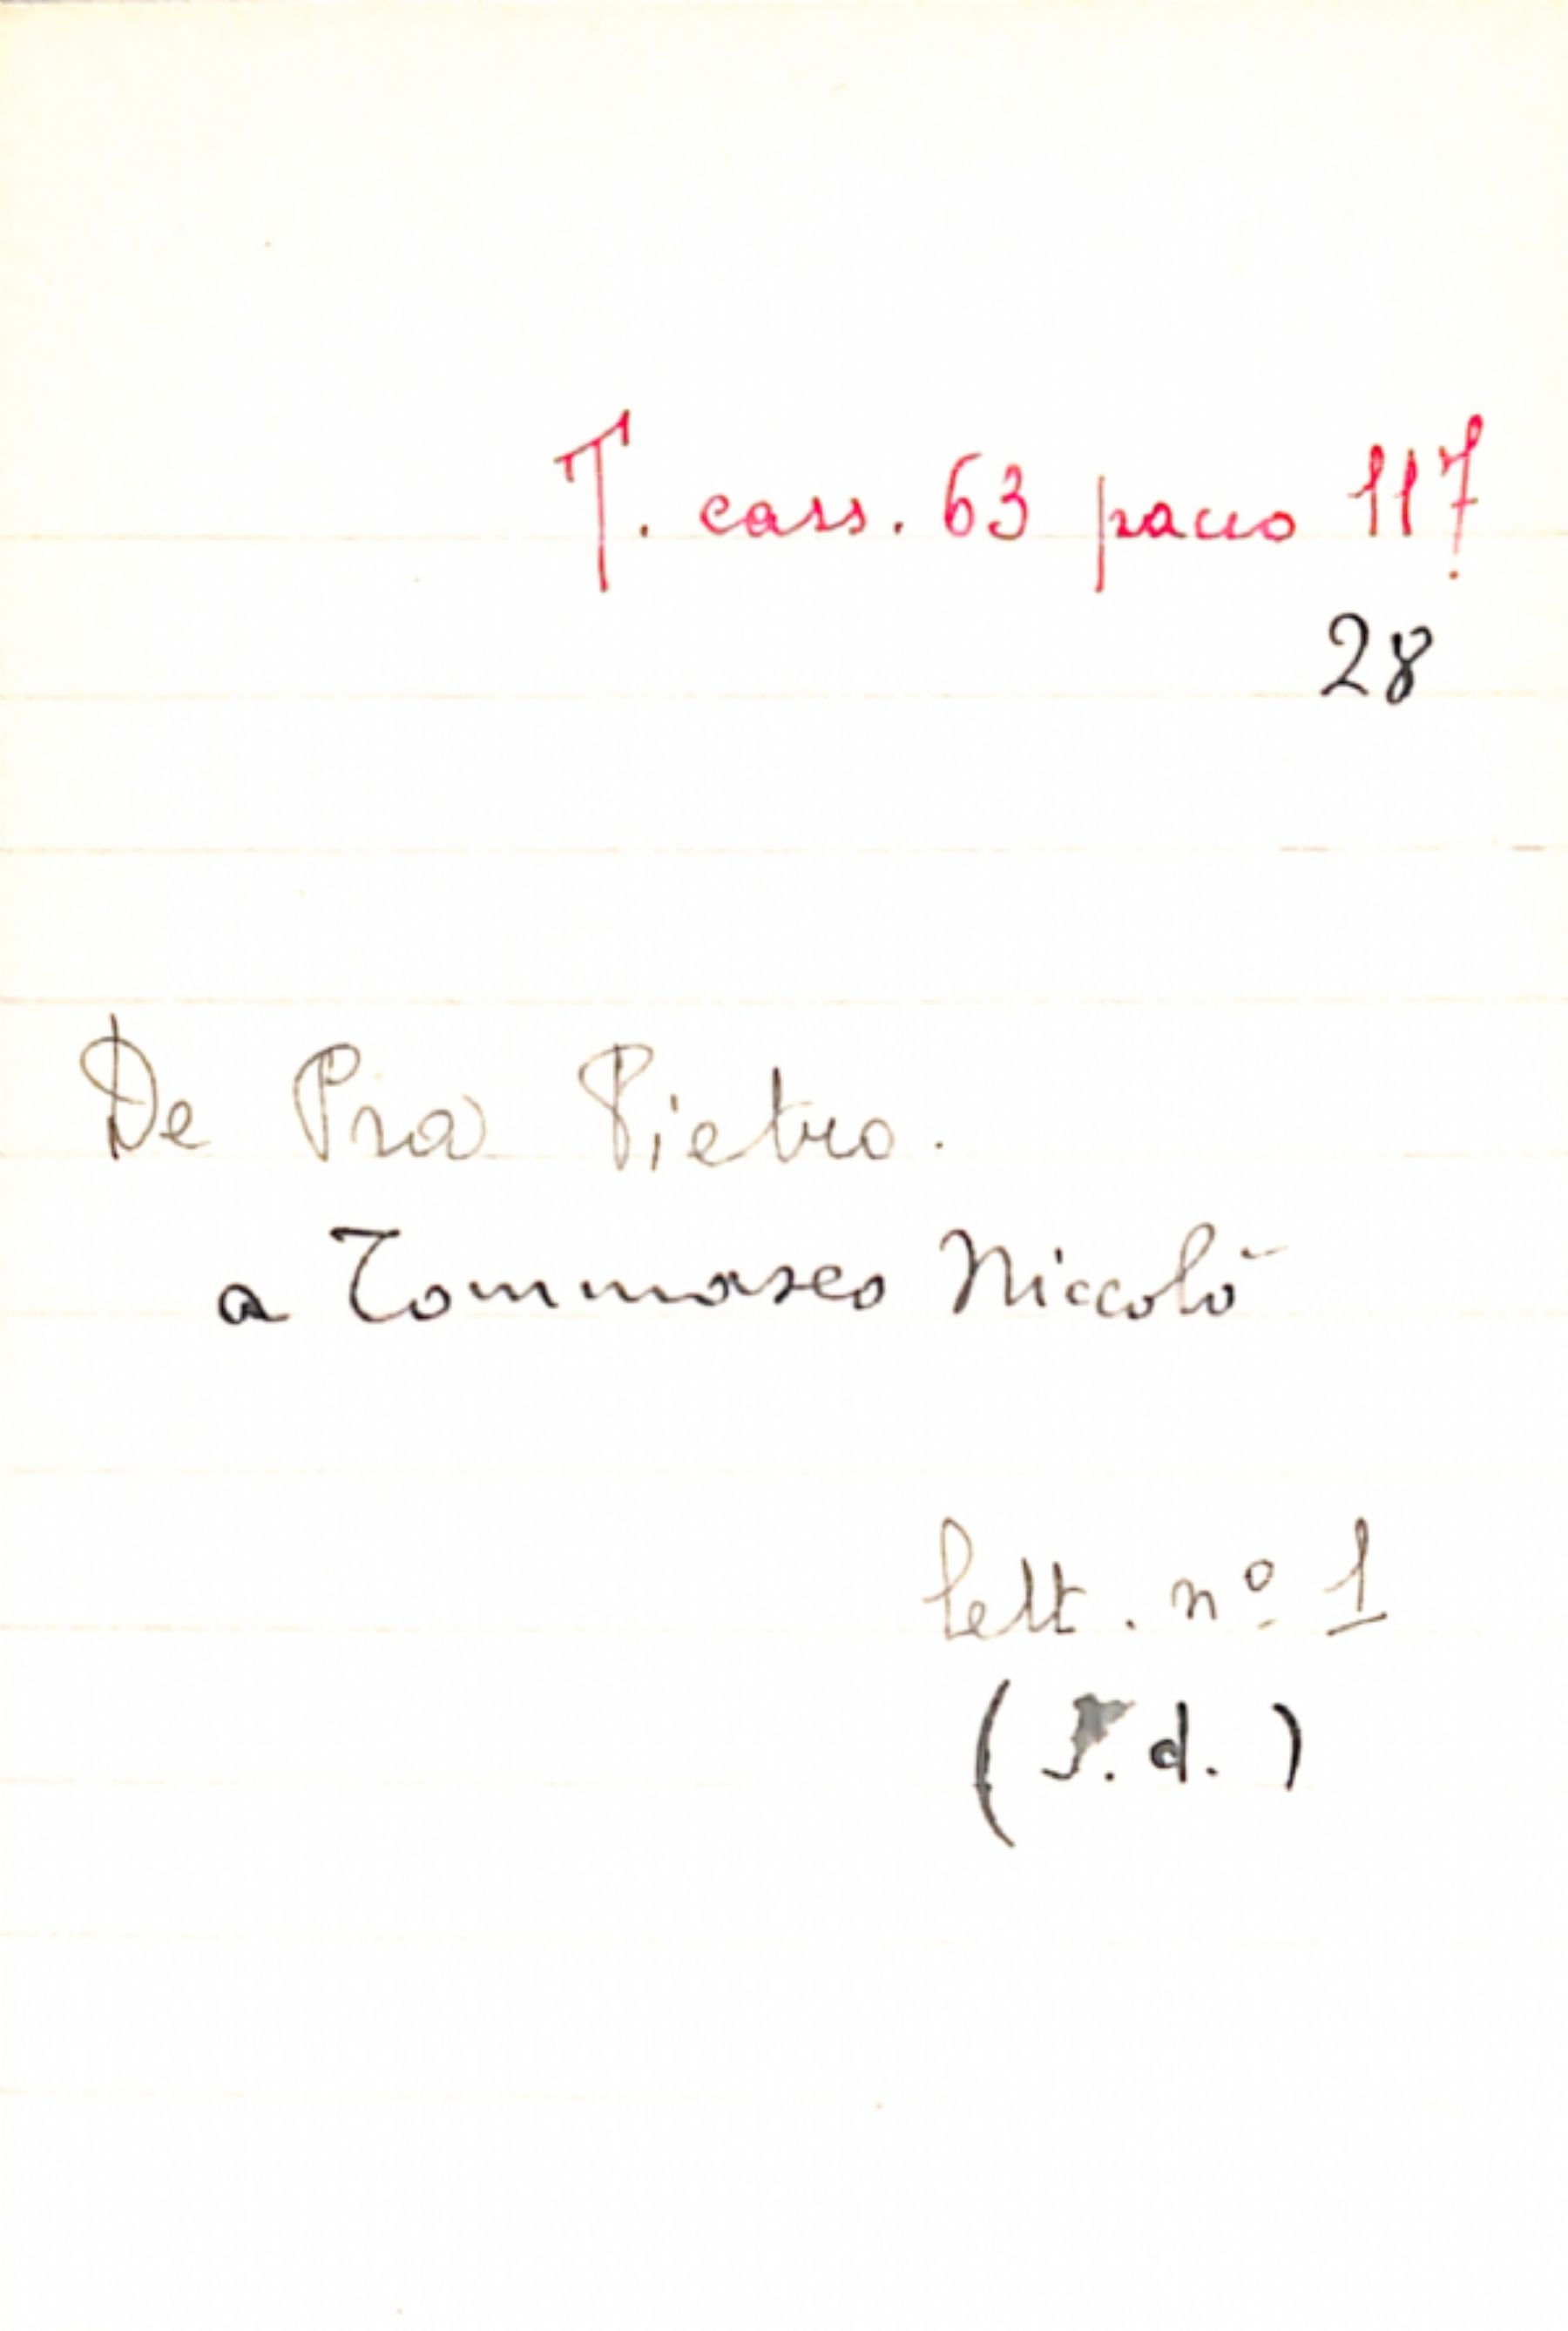 T. cass. 63 pacco 117.
28
De Pra Pietro.
a Tommaseo Niccolò
lett. nº 1
(s.d.)